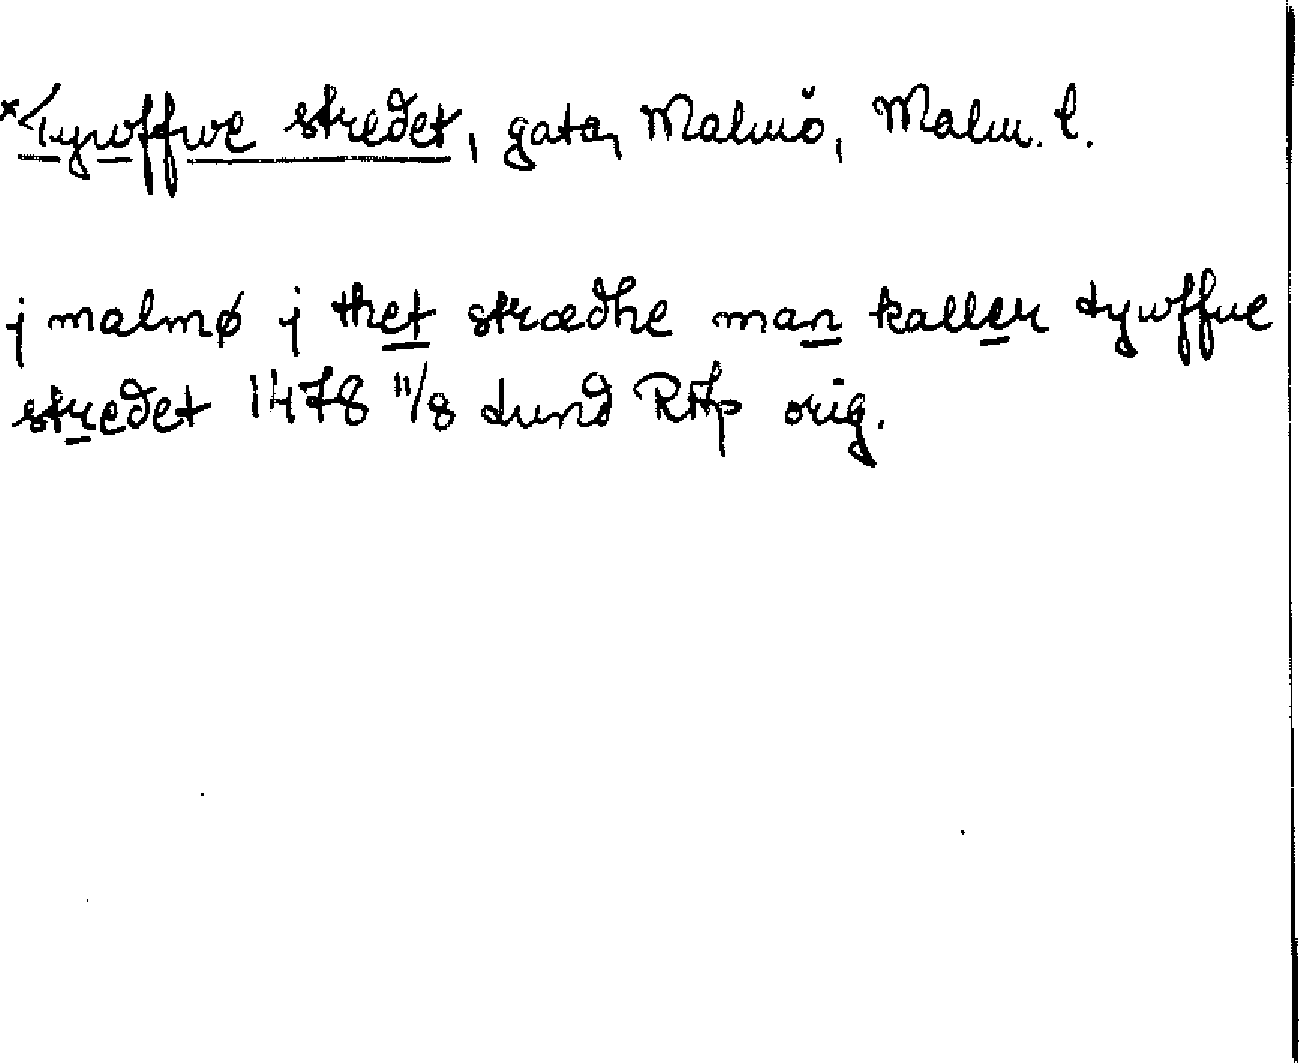 *Tywffwe stredet, gata, Malmö, Malm. l.
j malmø j thet strædhe man kaller tywffue
stredet 1478 11/8 Lund RAp orig.